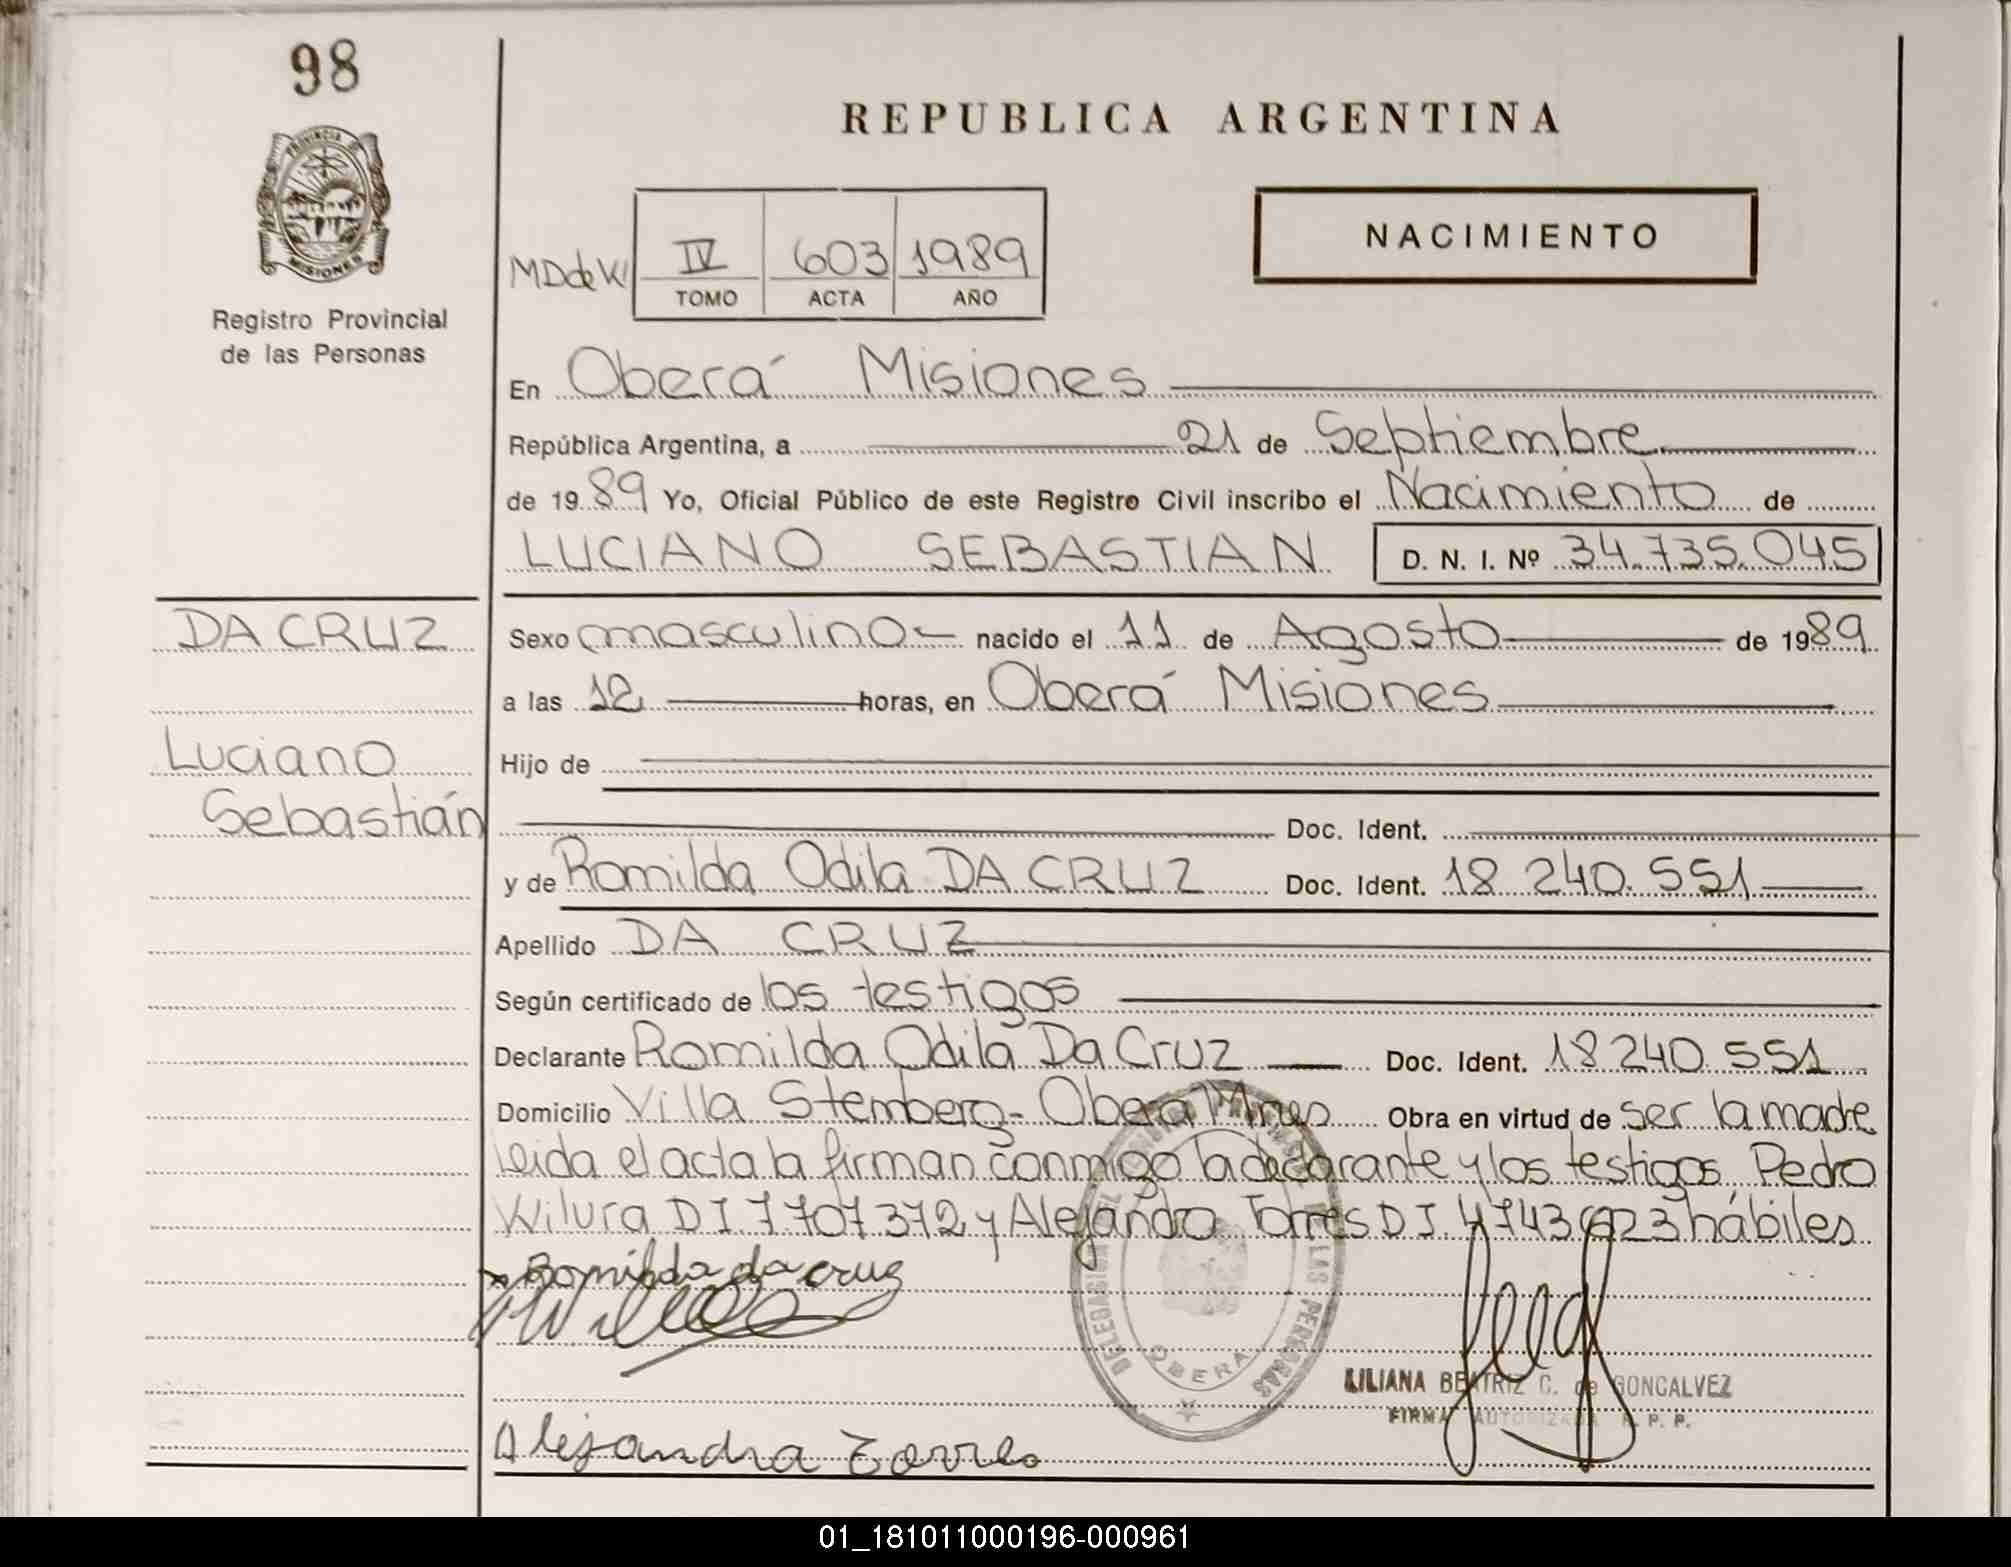 98
REPUBLICA ARGENTINA
PROVINCIA DE
MISIONES
Registro Provincial
de las Personas
NACIMIENTO
MDdeK
IV 603 1989
TOMO ACTA AÑO
En Oberá Misiones
República Argentina, a 21 de Septiembre
de 1989 Yo, Oficial Público de este Registro Civil inscribo el Nacimiento de
LUCIANO SEBASTIAN D. N. I. Nº 34.735.045
DA CRUZ
Luciano
Sebastián
Sexo masculino nacido el 11 de Agosto de 1989
a las 12 horas, en Oberá Misiones
Hijo de
Doc. Ident.
y de Romilda Odila DA CRUZ Doc. Ident. 18 240.551
Apellido DA CRUZ
Según certificado de los testigos
Declarante Romilda Odila Da Cruz Doc. Ident. 18 240.551
Domicilio Villa Stemberg- Oberá Mnes Obra en virtud de ser la madre
Leida el acta la firman conmigo la declarante y los testigos, Pedro
Wilura DI. 7707372 y Alejandra Torres DI. 4743623 hábiles
Romilda da cruz
DELEGACION DEL LAS PERSONAS
OBERA
LILIANA BEATRIZ C. de GONCALVEZ
FIRMA AUTORIZADA R. P. P.
Alejandra Torres
01_181011000196-000961